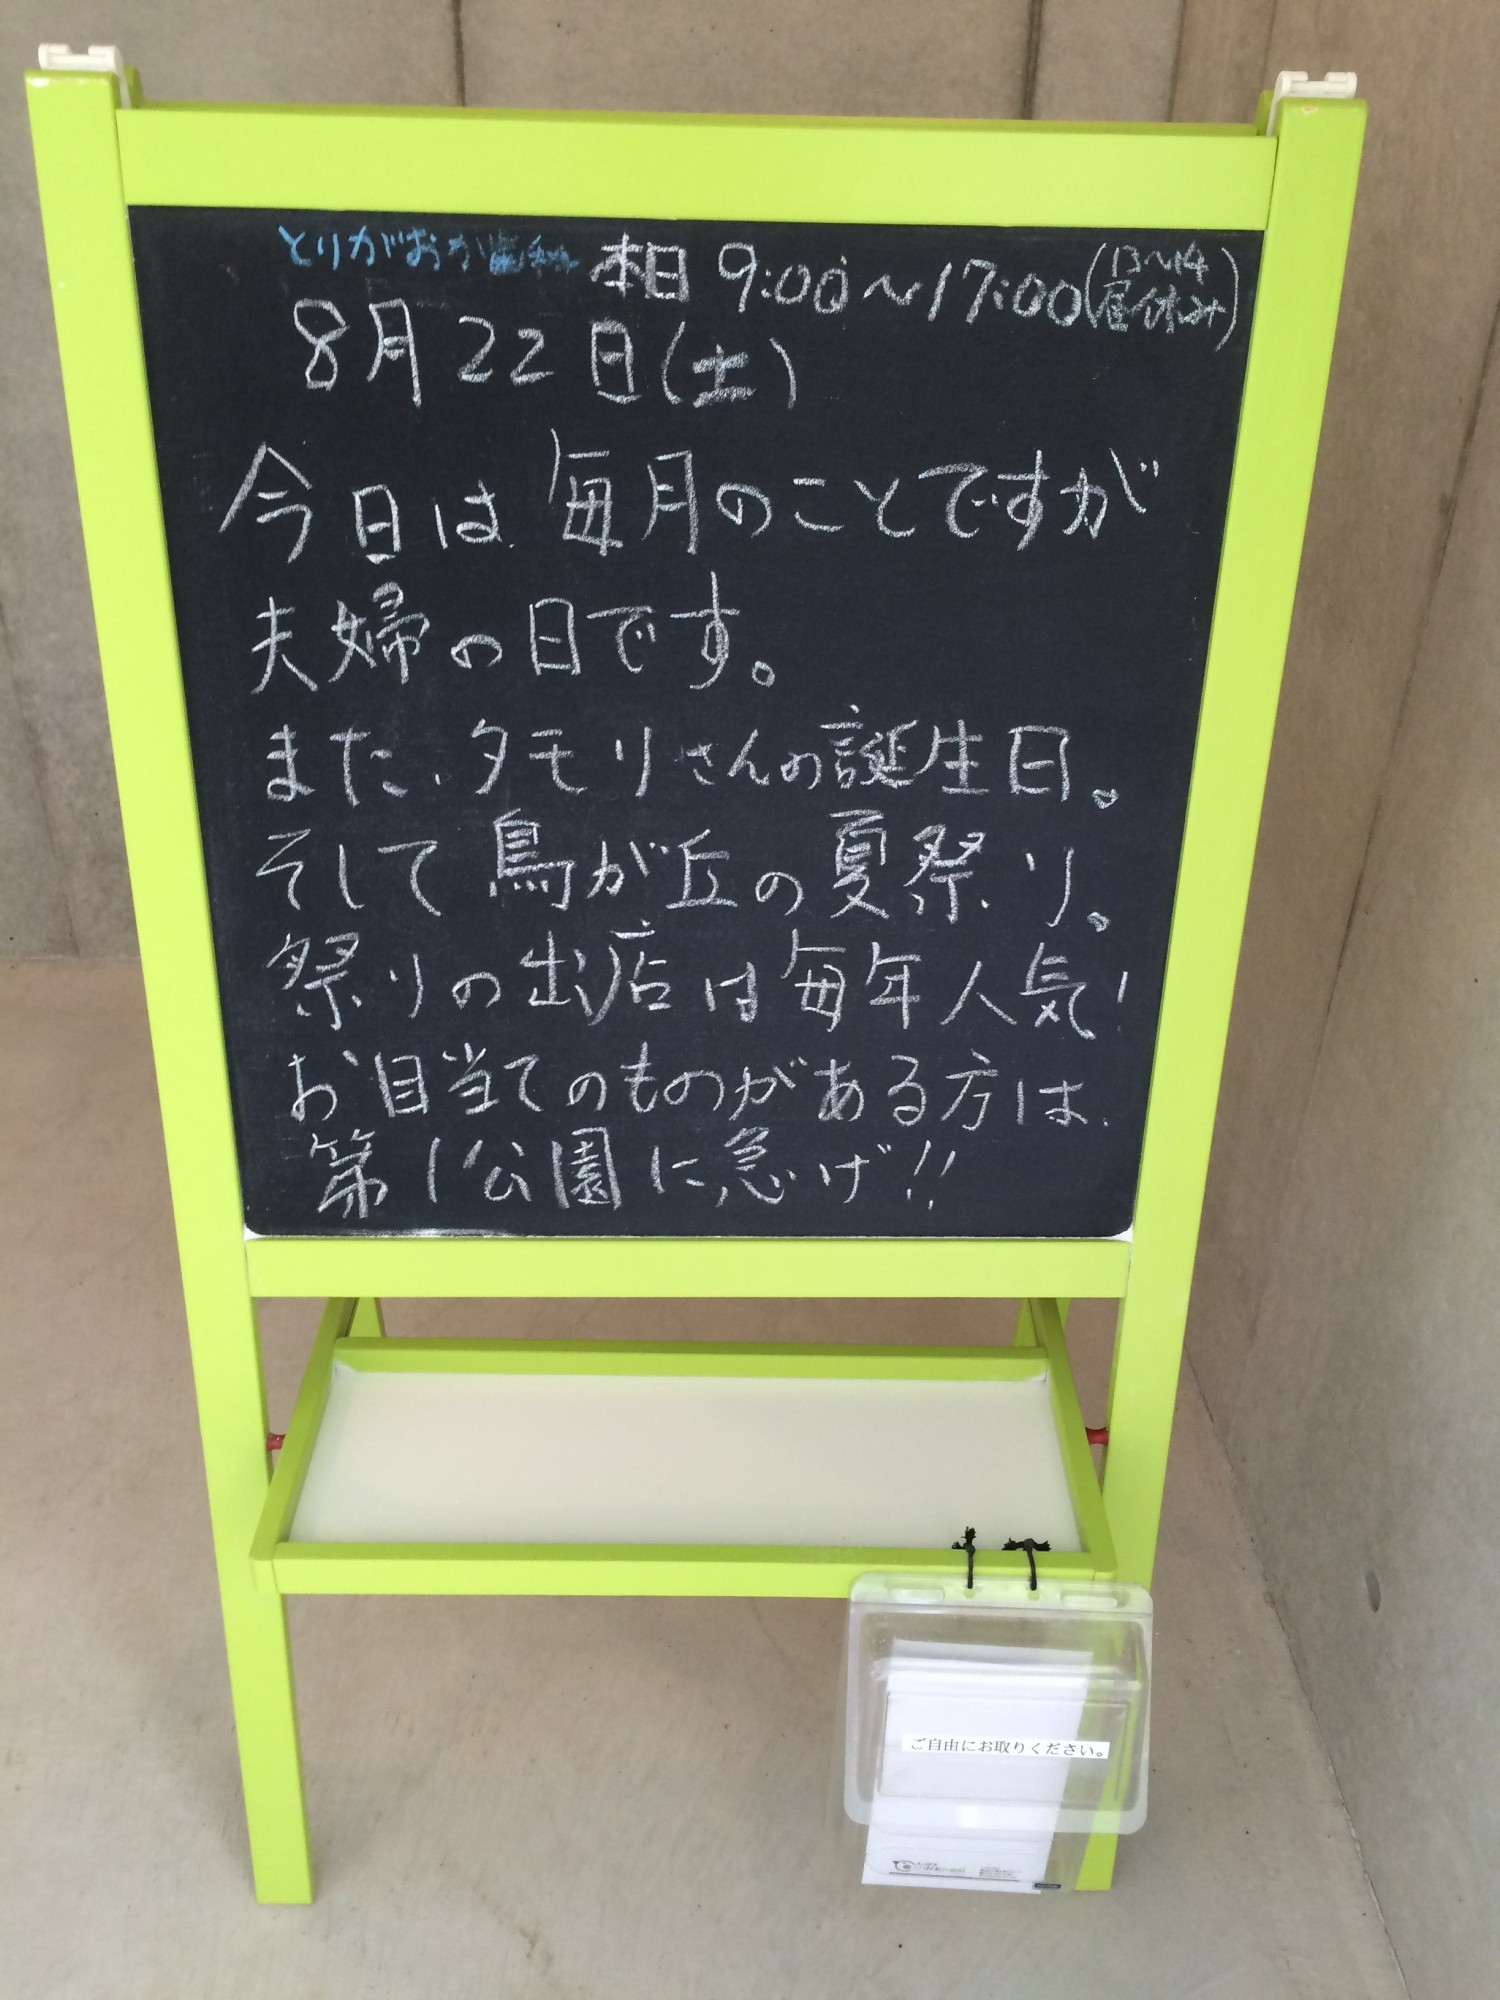 とりがおか歯科 本日 9:00～17:00(13～14昼休み)
8月22日(土)
今日は毎月のことですが
夫婦の日です。
また、タモリさんの誕生日。
そして鳥が丘の夏祭り。
祭りの出店は毎年人気!
お目当てのものがある方は、
第1公園に急げ!!
ご自由にお取りください。